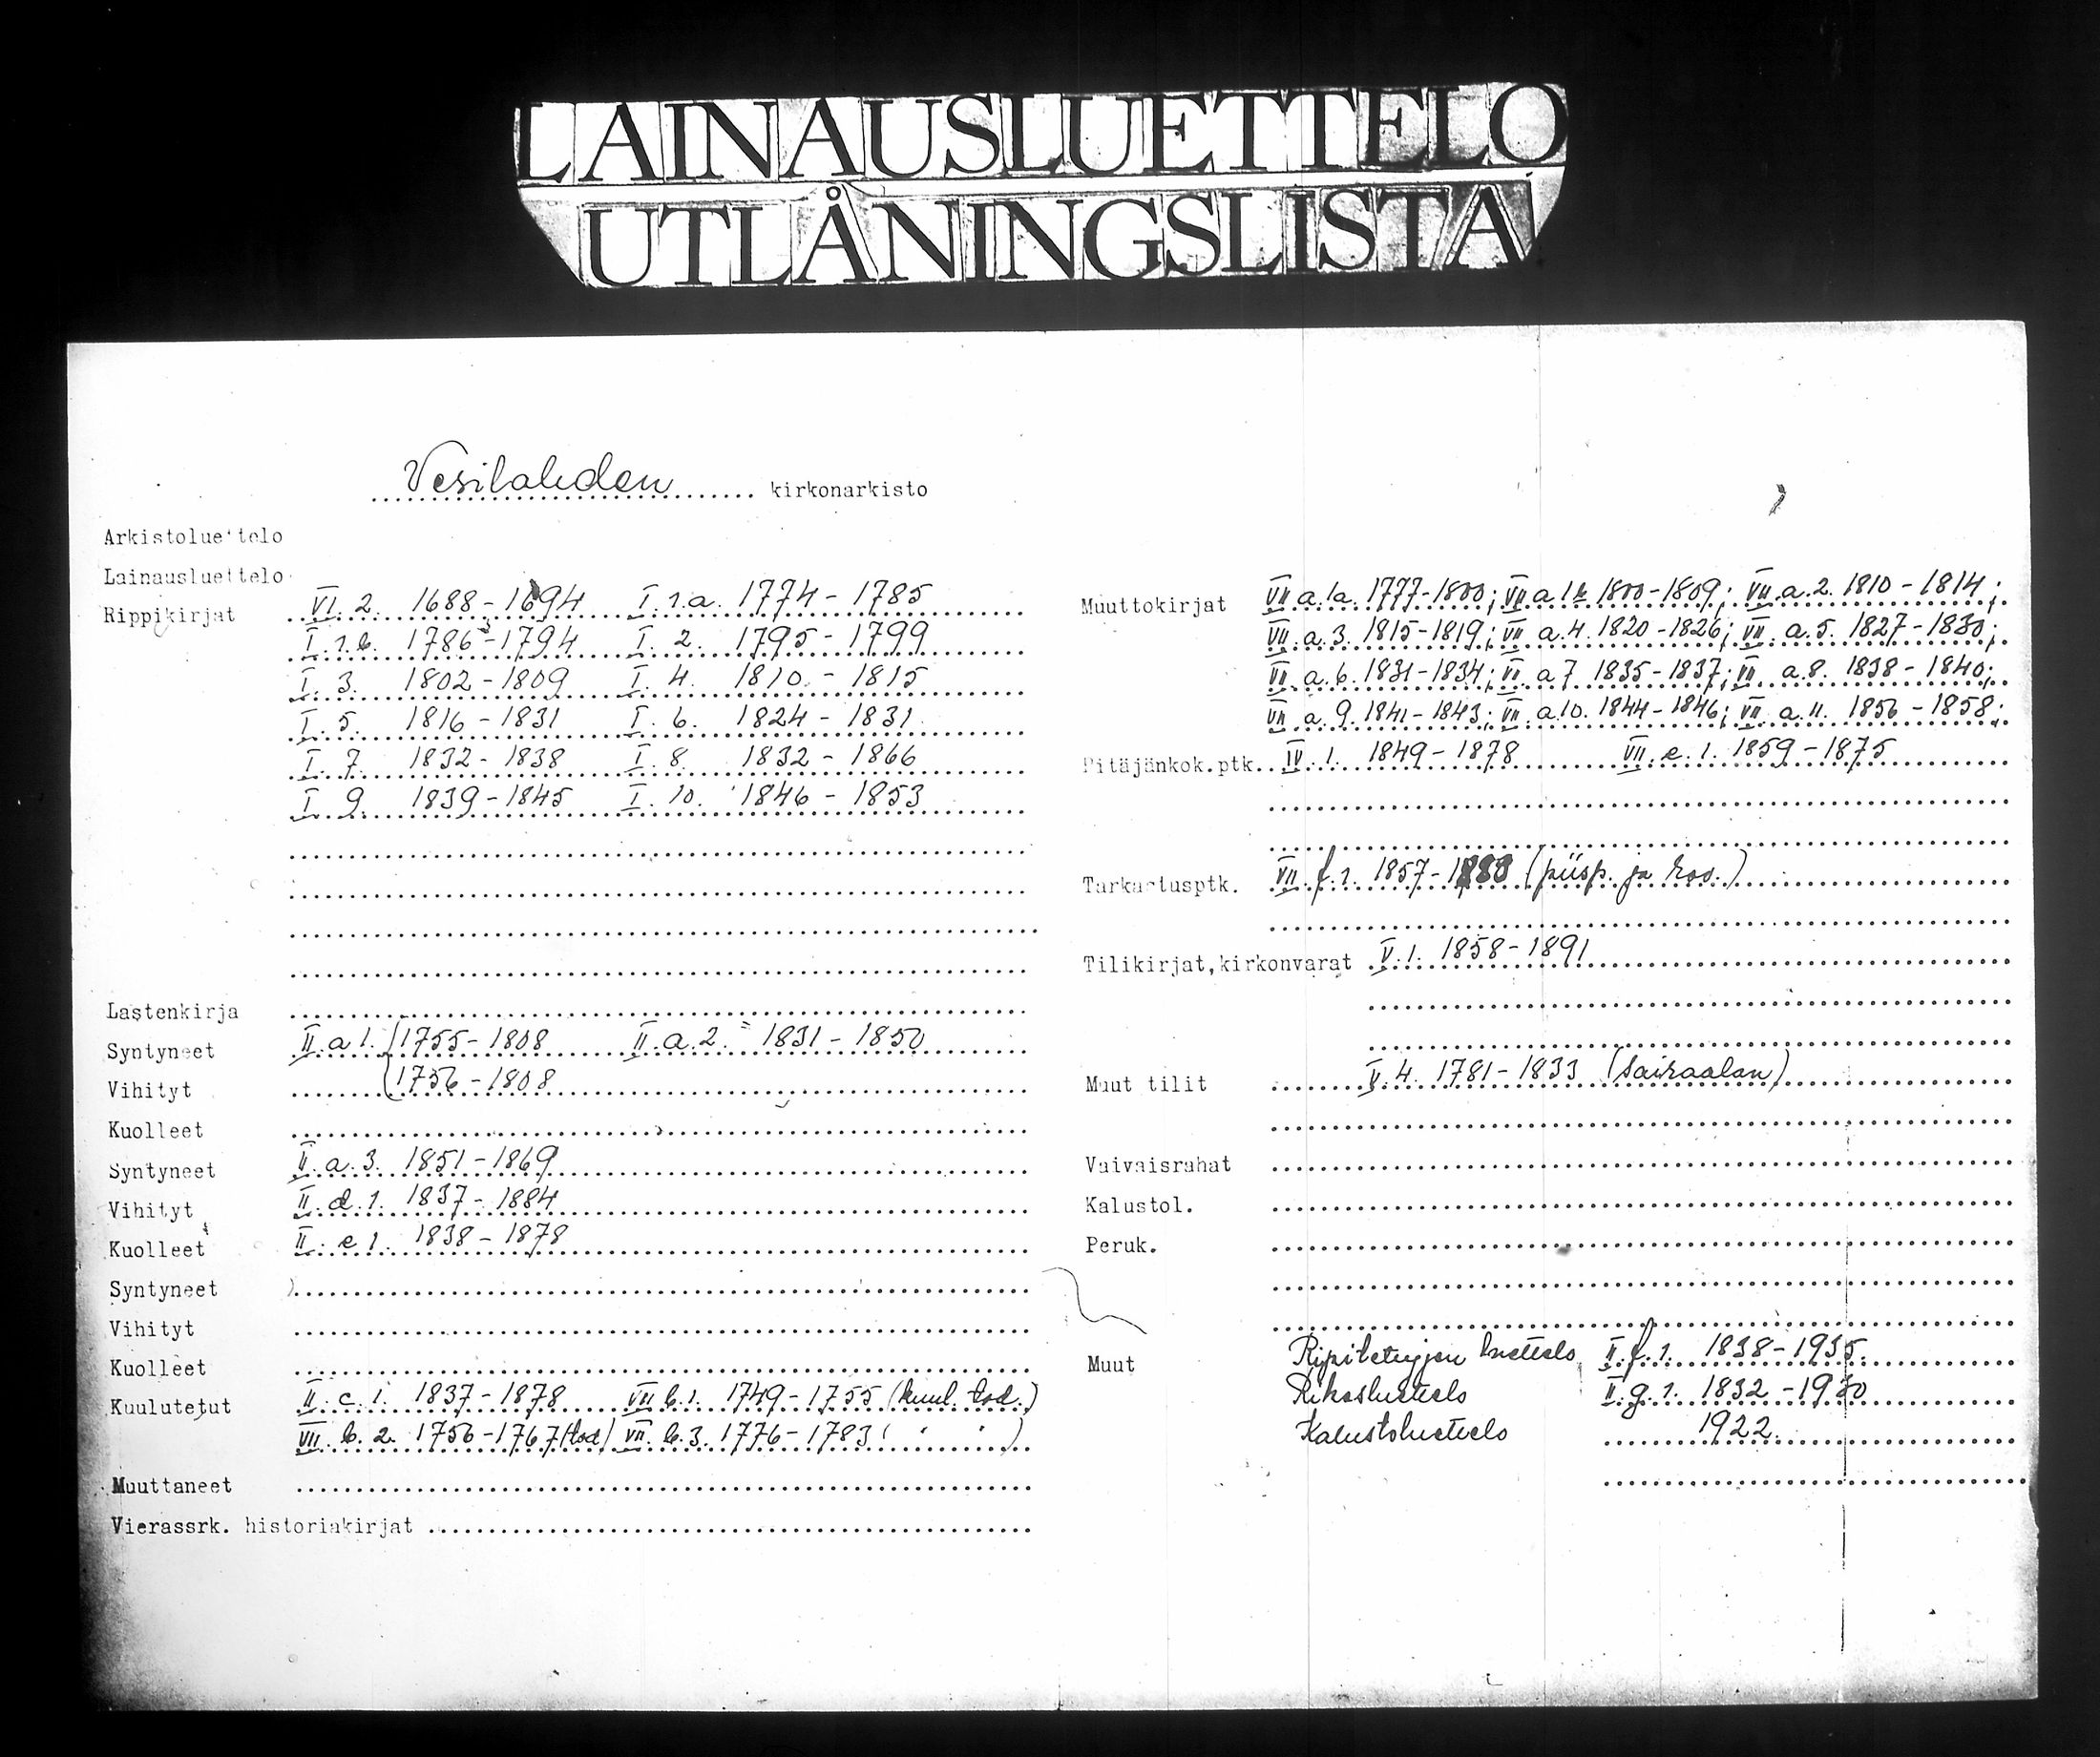 LAINAUSLUETTELO
UTLÅNINGSLISTA
Vesilahden kirkonarkisto
Arkistoluettelo
Lainausluettelo
Rippikirjat VI. 2. 1688-1694 I. 1.a. 1774-1785
I. 1.b. 1786-1794 I. 2. 1795-1799
I. 3. 1802-1809 I. 4. 1810-1815
I. 5. 1816-1831 I. 6. 1824-1831
I. 7. 1832-1838 I. 8. 1832-1866
I. 9. 1839-1845 I. 10. 1846-1853
Lastenkirja
Syntyneet II. a 1. 1755-1808 II. a. 2. 1831-1850
Vihityt 1756-1808
Kuolleet
Syntyneet II. a. 3. 1851-1869
Vihityt II. d. 1. 1837-1884
Kuolleet II. e 1. 1838-1878
Syntyneet
Vihityt
Kuolleet
Kuulutetut II. c. 1. 1837-1878 VII b. 1. 1749-1755 (kuul. tod.)
VII. b. 2. 1756-1767 (tod) VII. b. 3. 1776-1783 ( " " )
Muuttaneet
Vierassrk. historiakirjat
Muuttokirjat VII a. 1a. 1777-1800; VII a 1b 1800-1809; VII a. 2. 1810-1814;
VII. a. 3. 1815-1819; VII a. 4. 1820-1826; VII. a. 5. 1827-1830;
VII. a. 6. 1831-1834; VII. a 7 1835-1837; VII a. 8. 1838-1840;
VII a. 9. 1841-1843; VII. a. 10. 1844-1846; VII a. 11. 1856-1858;
Pitäjänkok.ptk. IV. 1. 1849-1878 VII. e. 1. 1859-1875
Tarkastusptk. VII f. 1. 1857- (piisp. ja rov.)
Tilikirjat,kirkonvarat V. 1. 1858-1891
Muut tilit V. 4. 1781-1833 (Sairaalan)
Vaivaisrahat
Kalustol.
Peruk.
Muut luettelo II. f. 1. 1838-1935.
Rikosluettelo II. g. 1. 1832-1930
Kalustoluettelo 1922.